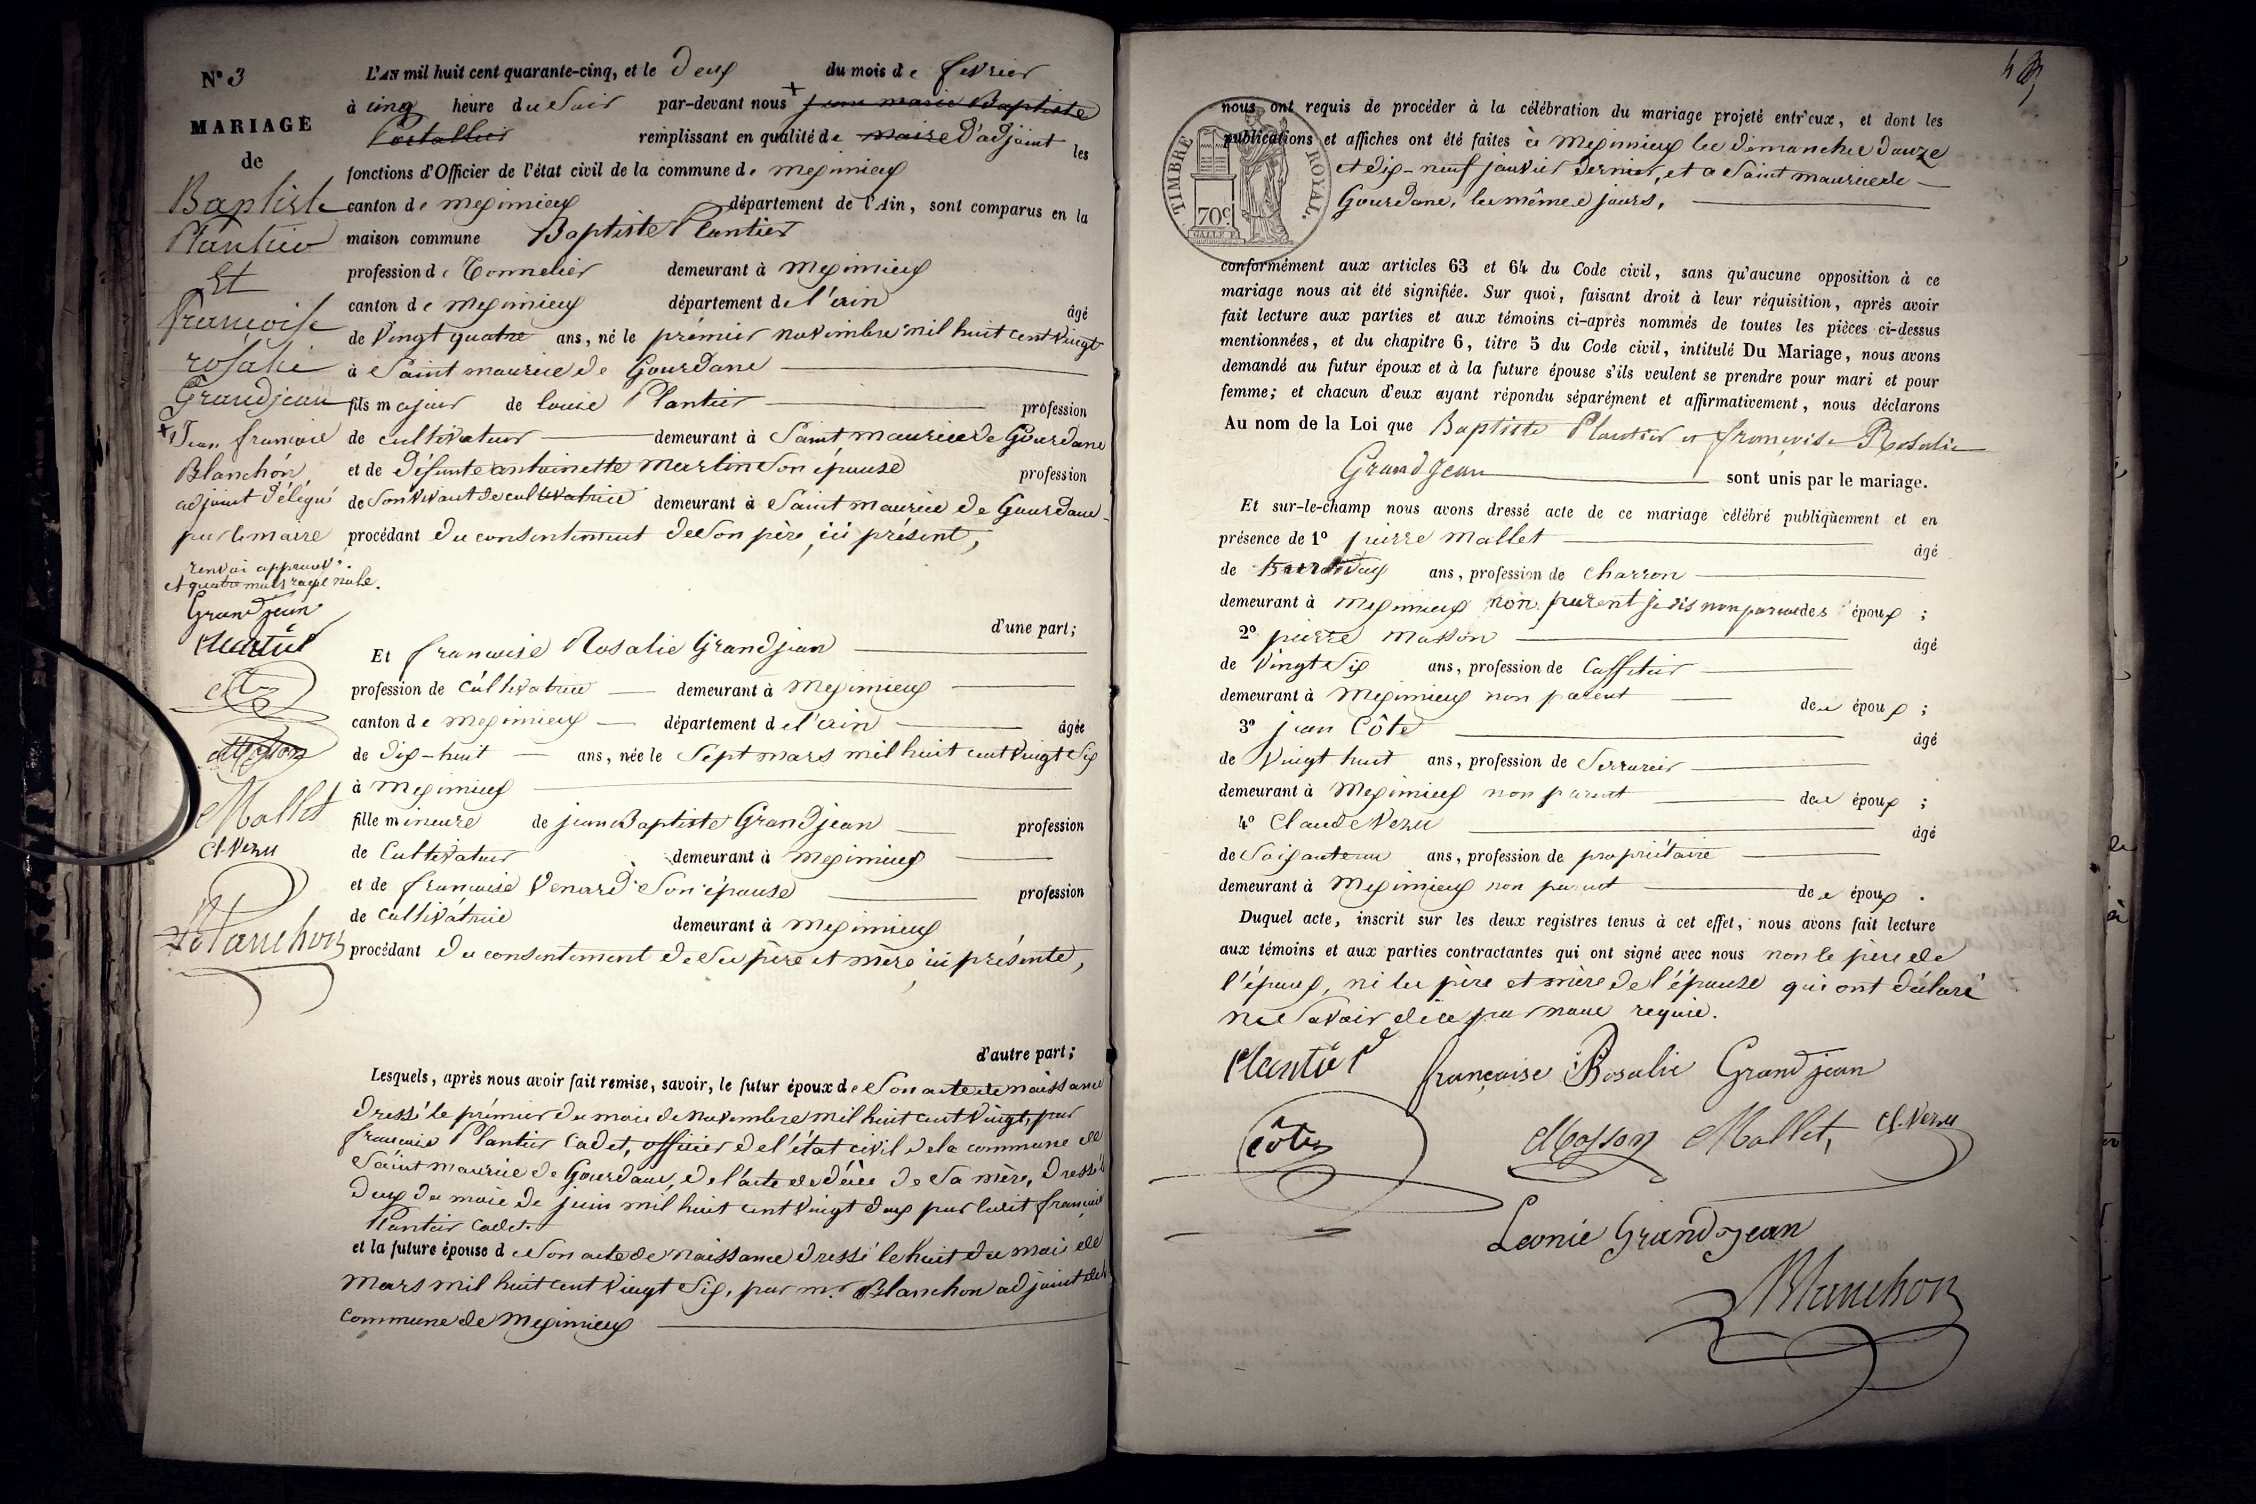 N° 3
MARIAGE
de
Baptiste
Plantier
Et
françoise
rosalie
Grandjean
+ Jean francois
Blanchon,
adjoint délégué
par le maire
renvoi approuvé.
et quatre mots rayé nule.
Grandjean
Plantier
Côte
Mosson
Mallet
Cl. Venu
Blanchon
L'AN mil huit cent quarante-cinq, et le deux du mois de fevrier
à cinq heure du Soir par-devant nous + jean marie Baptiste
Portallier remplissant en qualité de maire d'adjoint les
fonctions d'Officier de l'état civil de la commune de meximieux
canton de meximieux département de l'Ain, sont comparus en la
maison commune Baptiste Plantier
profession de Tonnelier demeurant à meximieux
canton de meximieux département de l'ain âgé
de Vingt quatre ans, né le prémier novembre mil huit cent Vingt
à Saint maurice de Gourdane
fils majeur de louis Plantier profession
de cultivateur demeurant à Saint maurice de Gourdane
et de défunte antoinette martin Son épouse profession
de Son vivant de cultivatrice demeurant à Saint maurice de Gourdane
procédant du consentement de Son père, ici présent,
d'une part;
Et francoise Rosalie Grandjean
profession de cultivatrice demeurant à meximieux
canton de meximieux département de l'ain âgée
de dix-huit ans, née le Sept mars mil huit cent Vingt Six
à meximieux
fille mineure de jean Baptiste Grandjean profession
de Cultivateur demeurant à meximieux
et de francoise Venard Son épouse profession
de cultivatrice demeurant à meximieux
procédant du consentement de Ses père et mère ici présents,
d'autre part;
Lesquels, après nous avoir fait remise, savoir, le futur époux de Son acte de naissance
dressé le prémier du mois de novembre mil huit cent Vingt, par
francois Plantier Cadet, officier de l'état civil de la commune de
Saint maurice de Gourdane, de l'acte de décès de Sa mère, dressé le
deux du mois de juin mil huit cent Vingt deux par ledit francois
Plantier Cadet.
et la future épouse de Son acte de naissance dressé le huit du mois de
mars mil huit cent Vingt Six, par mr. Blanchon adjoint de la
commune de meximieux
TIMBRE ROYAL.
70c
nous ont requis de procéder à la célébration du mariage projeté entr'eux, et dont les
publications et affiches ont été faites à meximieux les dimanches douze
et dix-neuf janvier dernier, et a Saint maurice de
Gourdane, les mêmes jours,
conformément aux articles 63 et 64 du Code civil, sans qu'aucune opposition à ce
mariage nous ait été signifiée. Sur quoi, faisant droit à leur réquisition, après avoir
fait lecture aux parties et aux témoins ci-après nommés de toutes les pièces ci-dessus
mentionnées, et du chapitre 6, titre 5 du Code civil, intitulé Du Mariage, nous avons
demandé au futur époux et à la future épouse s'ils veulent se prendre pour mari et pour
femme; et chacun d'eux ayant répondu séparément et affirmativement, nous déclarons
Au nom de la Loi que Baptiste Plantier et françoise Rosalie
Grandjean sont unis par le mariage.
Et sur-le-champ nous avons dressé acte de ce mariage célébré publiquement et en
présence de 1° pierre mallet âgé
de ans, profession de charron
demeurant à meximieux non parent je dis non parent des époux ;
2° pierre masson âgé
de Vingt Six ans, profession de Caffetier
demeurant à meximieux non parent des époux ;
3° jean Côte âgé
de Vingt huit ans, profession de Serrurier
demeurant à meximieux non parent des époux ;
4° Claude Venu âgé
de Soixante un ans, profession de propriétaire
demeurant à meximieux non parent des époux .
Duquel acte, inscrit sur les deux registres tenus à cet effet, nous avons fait lecture
aux témoins et aux parties contractantes qui ont signé avec nous non le père de
l'époux, ni les père et mère de l'épouse qui ont déclaré
ne Savoir de ce par nous requis.
Plantier françoise Rosalie Grandjean
Côte Mosson Mallet, Cl. Venu
Leonie Grandjean
Blanchon